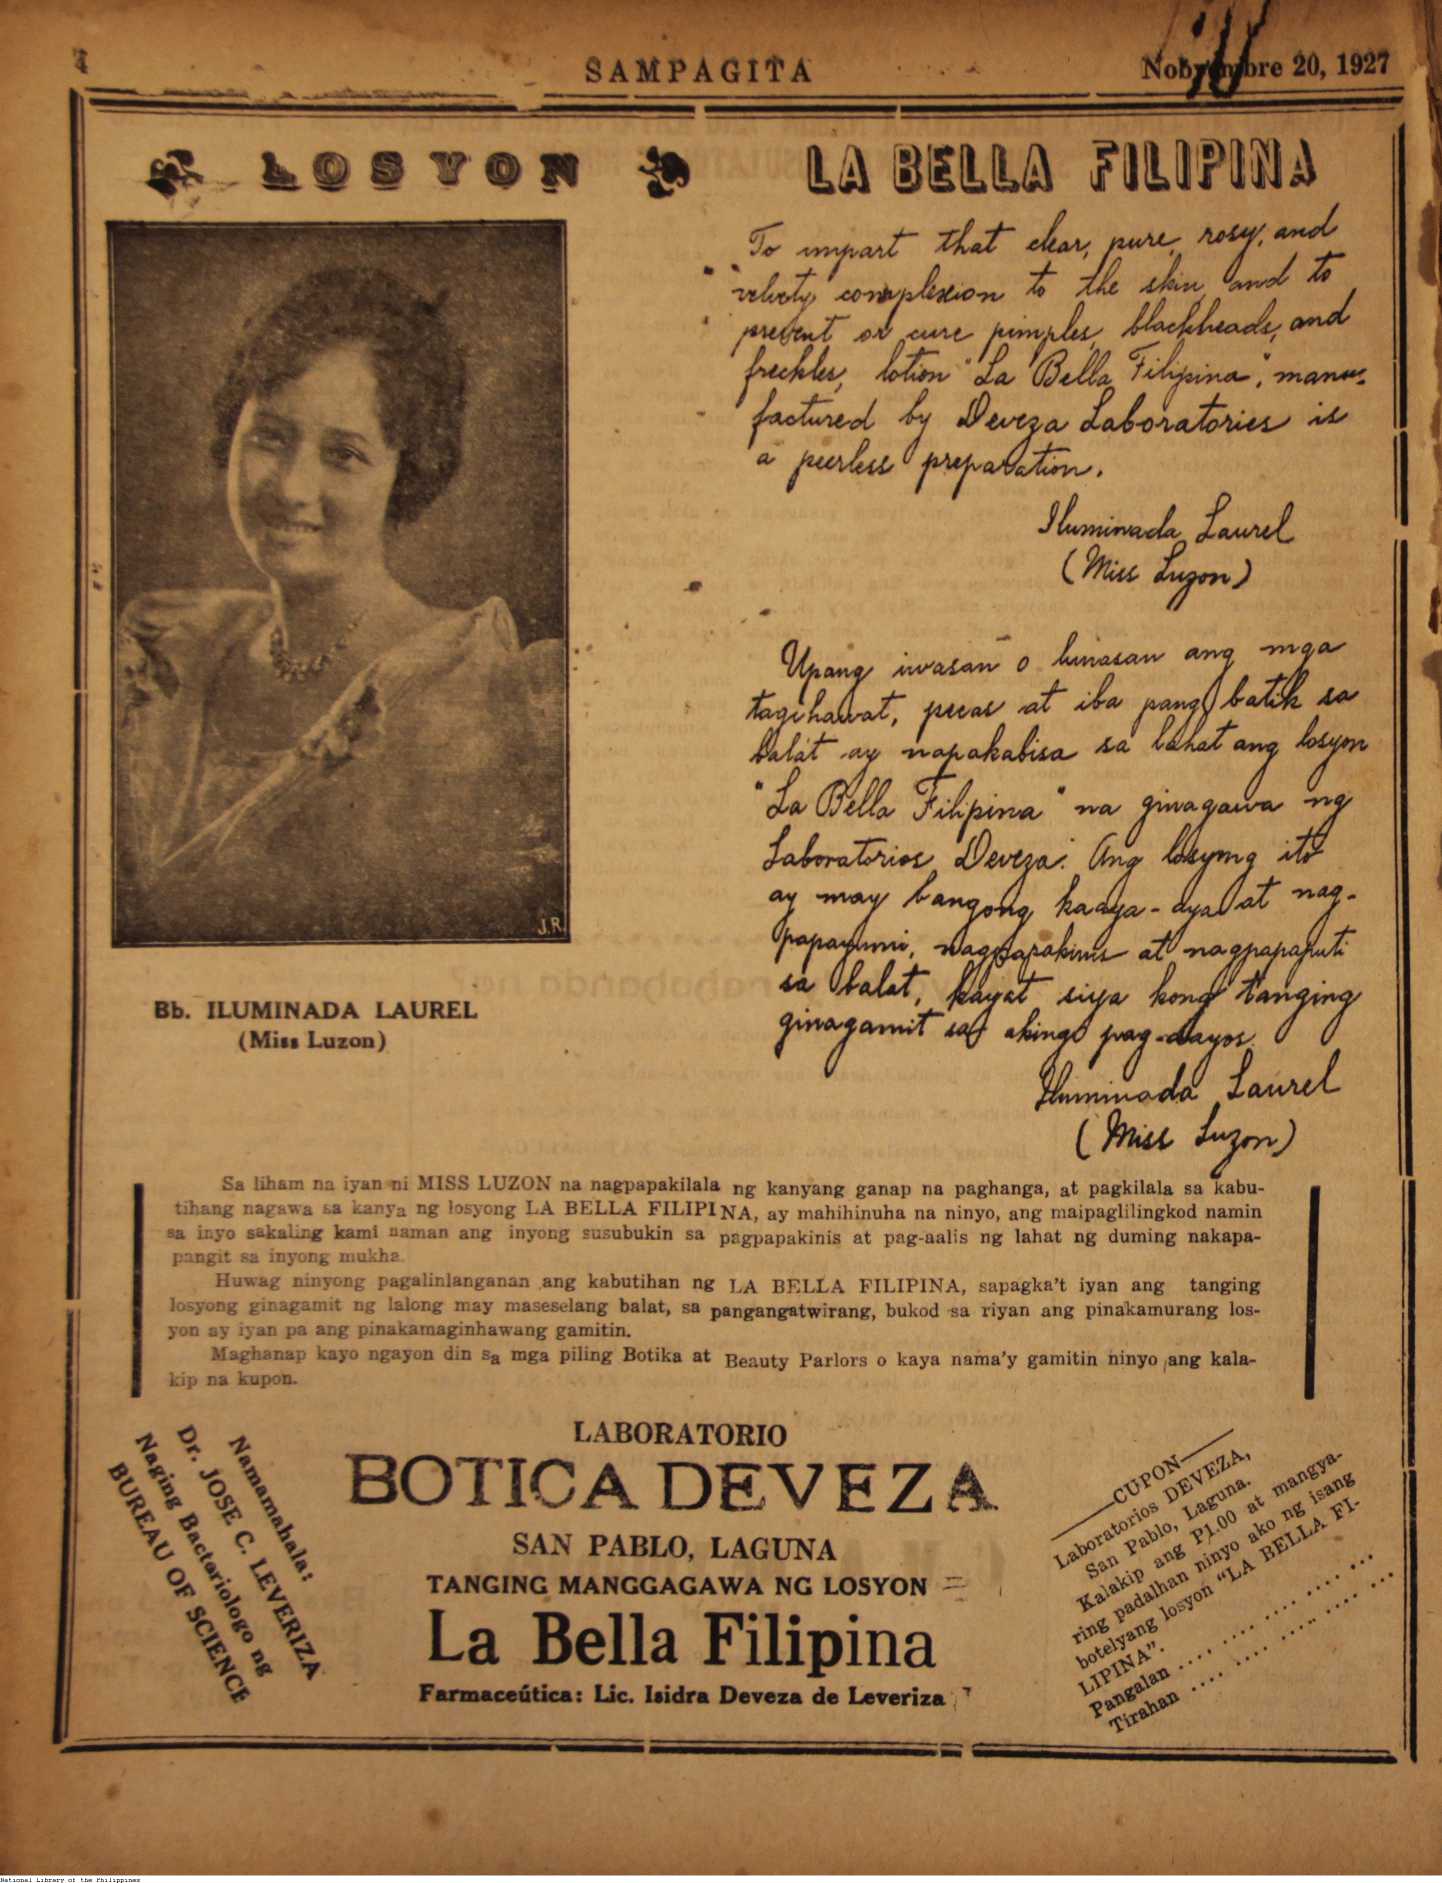 SAMPAGITA
Nobyembre 20, 1927
LOSYON
LA BELLA FILIPINA
To impart that clear, pure, rosy, and
velvety complexion to the skin, and to
prevent or cure pimples, blackheads, and
freckles, lotion "La Bella Filipina", manu-
factured by Deveza Laboratories is
a peerless preparation.
Iluminada Laurel
(Miss Luzon)
J.R.
Bb. ILUMINADA LAUREL
(Miss Luzon)
Upang iwasan o lunasan ang mga
tagihawat, pecas at iba pang batik sa
balat ay napakabisa sa lahat ang losyon
"La Bella Filipina" na ginagawa ng
Laboratorios Deveza. Ang losyong ito
ay may bangong kaaya-aya at nag-
papayumi, nagpapakinis at nagpapaputi
sa balat, kayat siya kong tanging
ginagamit sa aking pag-aayos.
Iluminada Laurel
(Miss Luzon)
Sa liham na iyan ni MISS LUZON na nagpapakilala ng kanyang ganap na paghanga, at pagkilala sa kabu-
tihang nagawa sa kanya ng losyong LA BELLA FILIPINA, ay mahihinuha na ninyo, ang maipaglilingkod namin
sa inyo sakaling kami naman ang inyong susubukin sa pagpapakinis at pag-aalis ng lahat ng duming nakapa-
pangit sa inyong mukha.
Huwag ninyong pagalinlanganan ang kabutihan ng LA BELLA FILIPINA, sapagka't iyan ang tanging
losyong ginagamit ng lalong may maseselang balat, sa pangangatwirang, bukod sa riyan ang pinakamurang los-
yon ay iyan pa ang pinakamaginhawang gamitin.
Maghanap kayo ngayon din sa mga piling Botika at Beauty Parlors o kaya nama'y gamitin ninyo ang kala-
kip na kupon.
Namamahala:
Dr. JOSE C. LEVERIZA
Naging Bactariologo ng
BUREAU OF SCIENCE
LABORATORIO
BOTICA DEVEZA
SAN PABLO, LAGUNA
TANGING MANGGAGAWA NG LOSYON
La Bella Filipina
Farmaceútica: Lic. Isidra Deveza de Leveriza
——CUPON——
Laboratorios DEVEZA,
San Pablo, Laguna.
Kalakip ang P1.00 at mangya-
ring padalhan ninyo ako ng isang
botelyang losyon "LA BELLA FI-
LIPINA".
Pangalan .... .... .... .... ...
Tirahan .... .... ..... .... ...
National Library of the Philippines